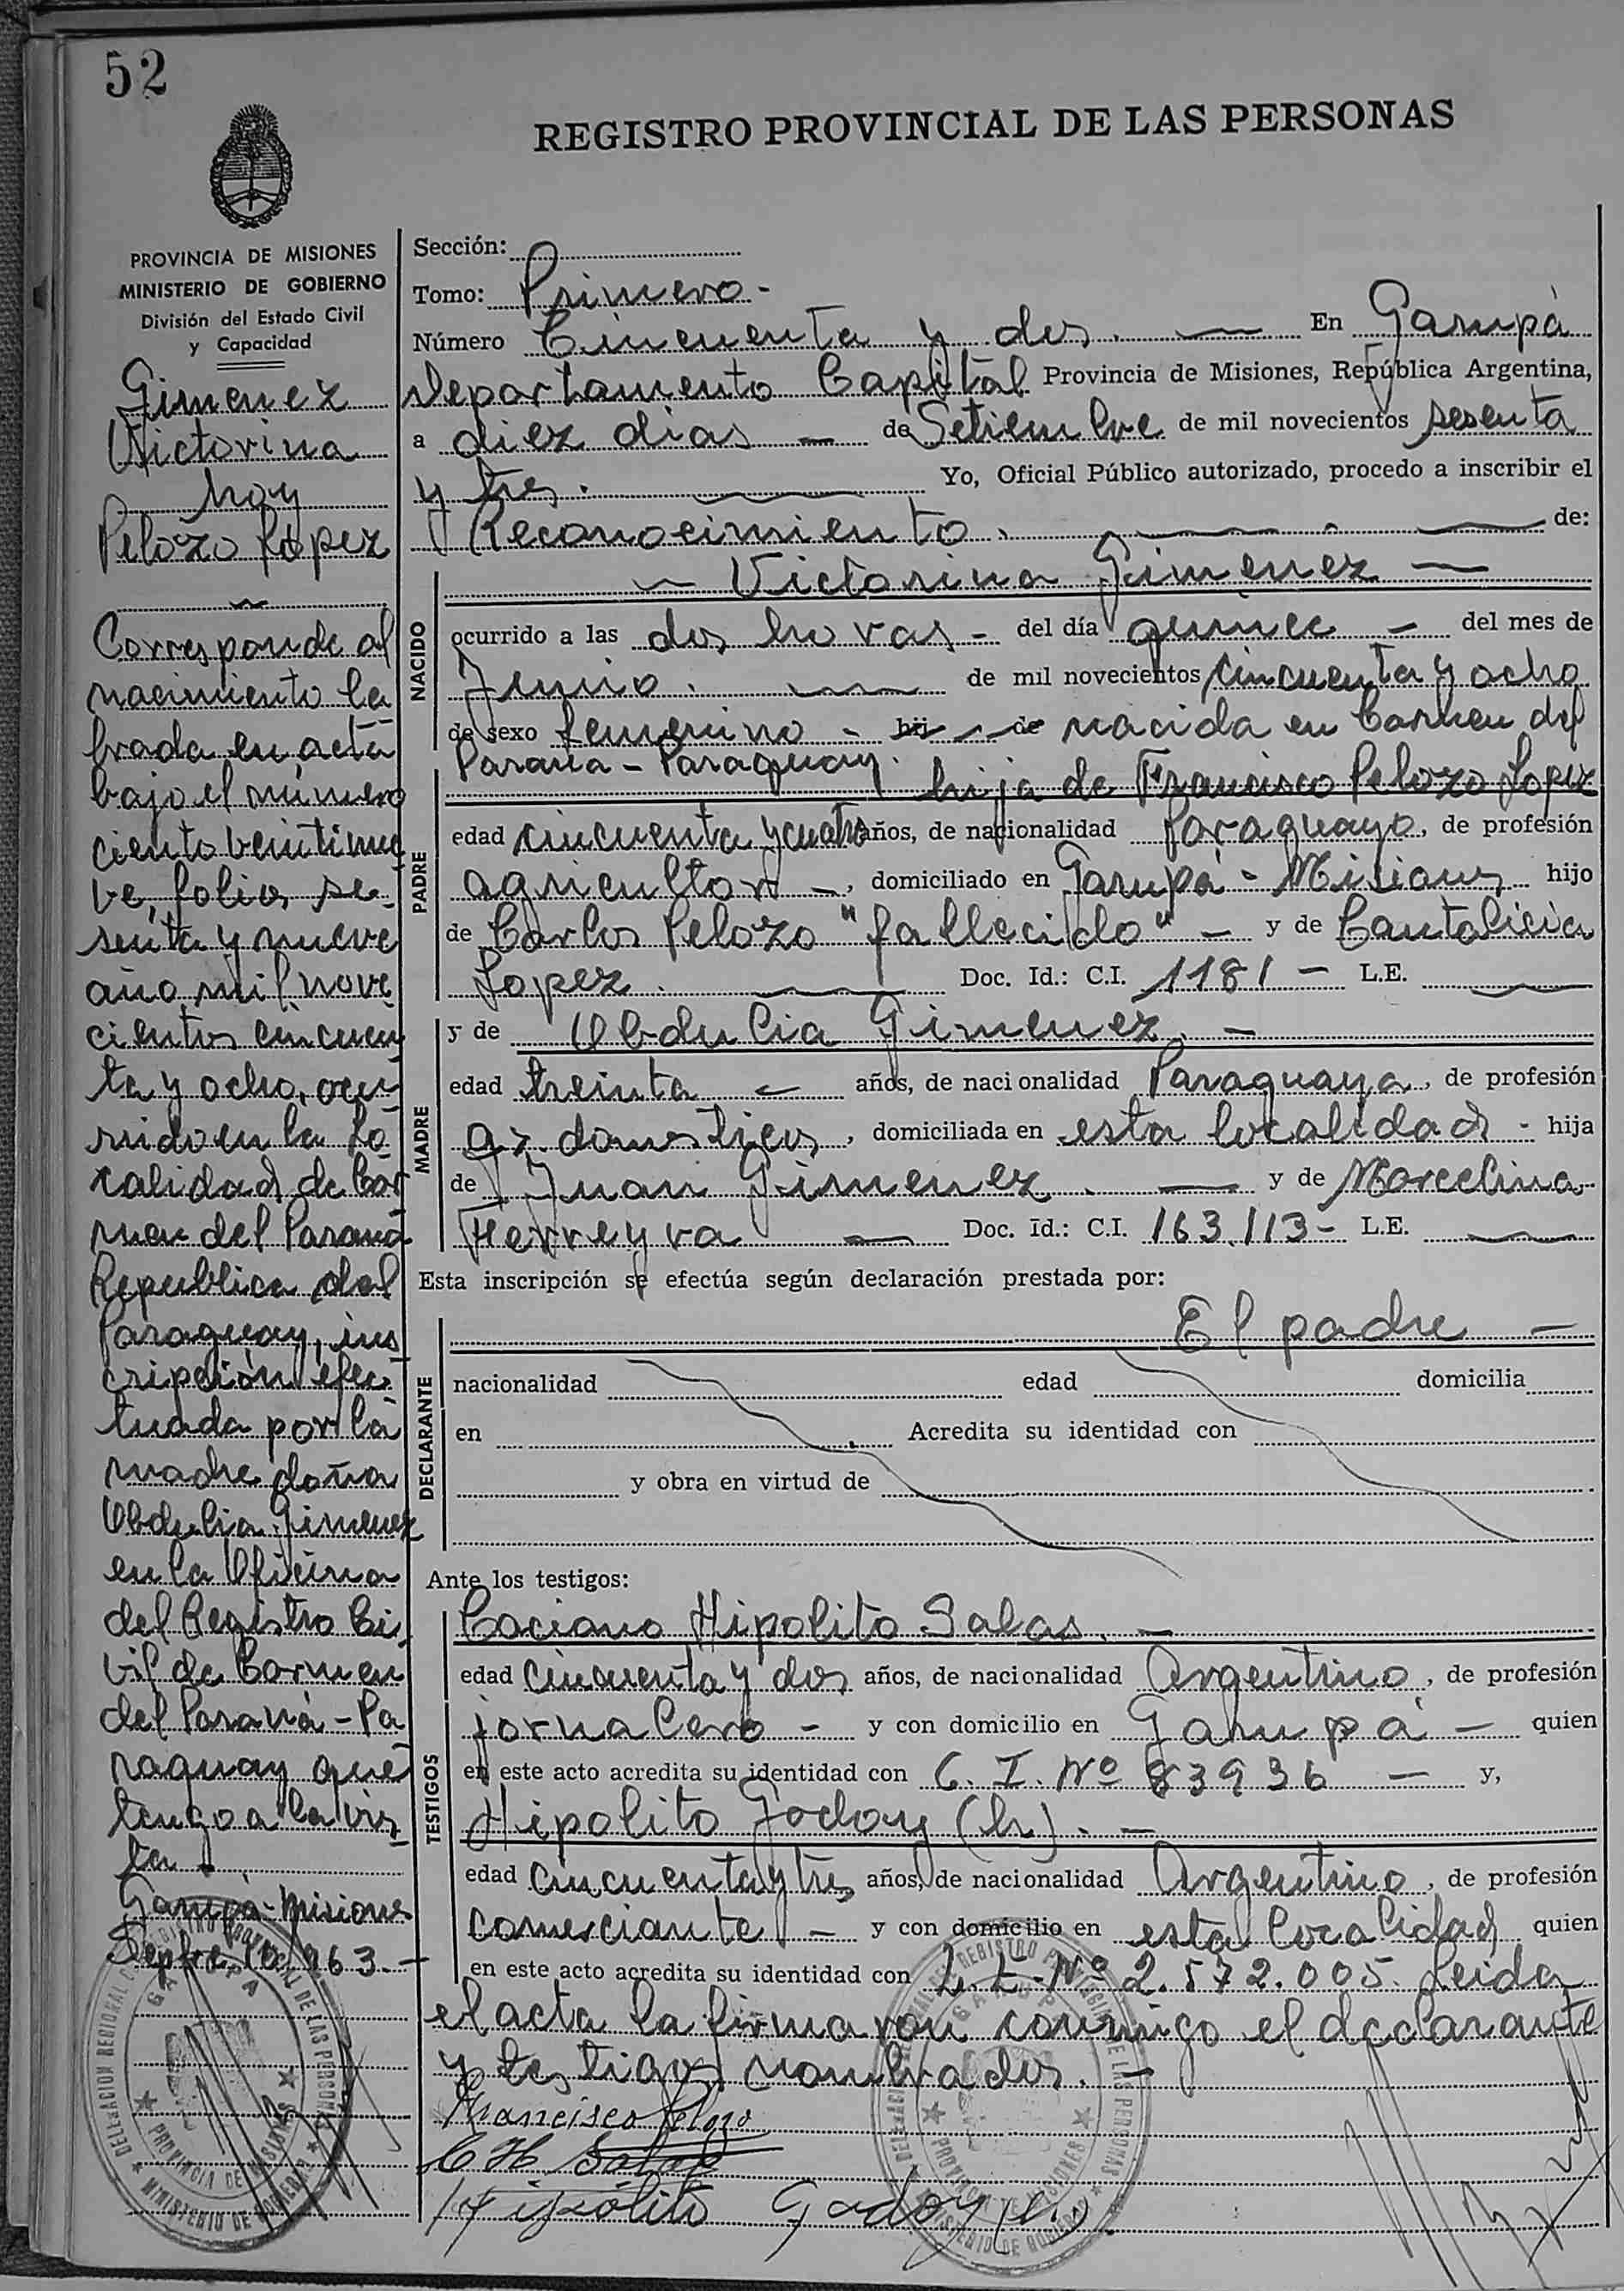 52
REGISTRO PROVINCIAL DE LAS PERSONAS
PROVINCIA DE MISIONES
MINISTERIO DE GOBIERNO
División del Estado Civil
y Capacidad
Gimenez
Victorina
hoy
Pelozo López
Corresponde al
nacimiento la
brada en acta
bajo el número
ciento veintinue
ve, folio se
senta y nueve
año mil nove
cientos cincuen
ta y ocho, ocu
rrido en la Lo
calidad de Car
men del Paraná
Republica del
Paraguay, ins
cripción efec
tuada por la
madre doña
Obdulia Gimenez
en la Oficina
del Registro Ci
vil de Carmen
del Paraná - Pa
raguay que
tengo a la vis
ta.
Garupá - Misiones
Sepbre 10 963. -
Sección:
Tomo: Primero -
Número Cincuenta y dos. — En Garupá
Departamento Capital Provincia de Misiones, República Argentina,
a diez días — de Setiembre de mil novecientos sesenta
y tres. Yo, Oficial Público autorizado, procedo a inscribir el
Reconocimiento. de:
Victorina Gimenez —
NACIDO
ocurrido a las dos horas - del día quince — del mes de
Junio. de mil novecientos cincuenta y ocho
de sexo femenino - hij de nacida en Carmen del
Paraná - Paraguay. hija de Francisco Pelozo Lopez
PADRE
edad cincuenta y cuatro años, de nacionalidad paraguayo, de profesión
agricultor —, domiciliado en Garupá - Misiones hijo
de Carlos Pelozo "fallecido" — y de Cantalicia
Lopez. Doc. Id.: C.I. 1181 — L.E.
MADRE
y de Obdulia Gimenez. —
edad treinta — años, de nacionalidad Paraguaya, de profesión
q. domesticos, domiciliada en esta localidad - hija
de Juan Gimenez. — y de Marcelina
Ferreyra — Doc. Id.: C.I. 163.113 - L.E.
Esta inscripción se efectúa según declaración prestada por:
DECLARANTE
El padre —
nacionalidad edad domicilia
en Acredita su identidad con
y obra en virtud de
Ante los testigos:
TESTIGOS
Caciano Hipolito Salas. —
edad cincuenta y dos años, de nacionalidad Argentino, de profesión
jornalero - y con domicilio en Garupá — quien
en este acto acredita su identidad con C. I. Nº 83936 — y,
Hipolito Godoy (h). —
edad cincuenta y tres años, de nacionalidad Argentino, de profesión
comerciante - y con domicilio en esta localidad quien
en este acto acredita su identidad con L. E. Nº 2.572.005. Leida
el acta la firmaron conmigo el declarante
y testigos nombrados. —
Francisco Pelozo
C H Salas
Hipólito Godoy (h).
DELEGACION REGIONAL REGISTRO PROVINCIAL DE LAS PERSONAS
GARUPA
PROVINCIA DE MISIONES
MINISTERIO DE GOBIERNO
REGISTRO PROVINCIAL DE LAS PERSONAS
GARUPA
PROVINCIA DE MISIONES
MINISTERIO DE GOBIERNO